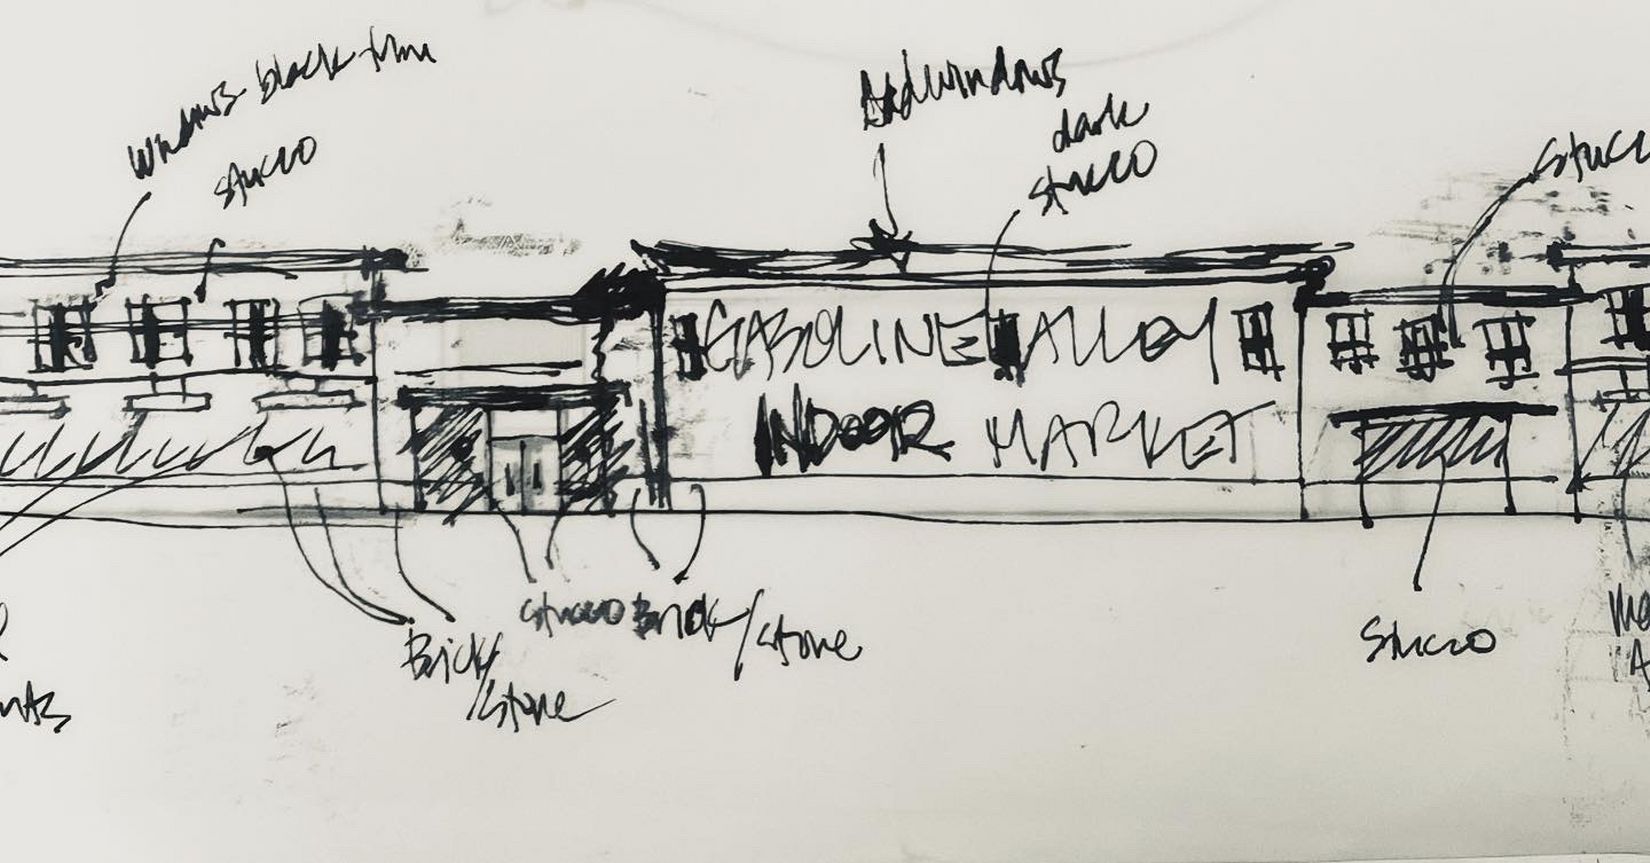 windows black trim
stucco
Add windows
dark
stucco
Stucc
GASOLINE ALLEY
INDOOR MARKET
stucco Brick/stone
Brick
/stone
Stucco